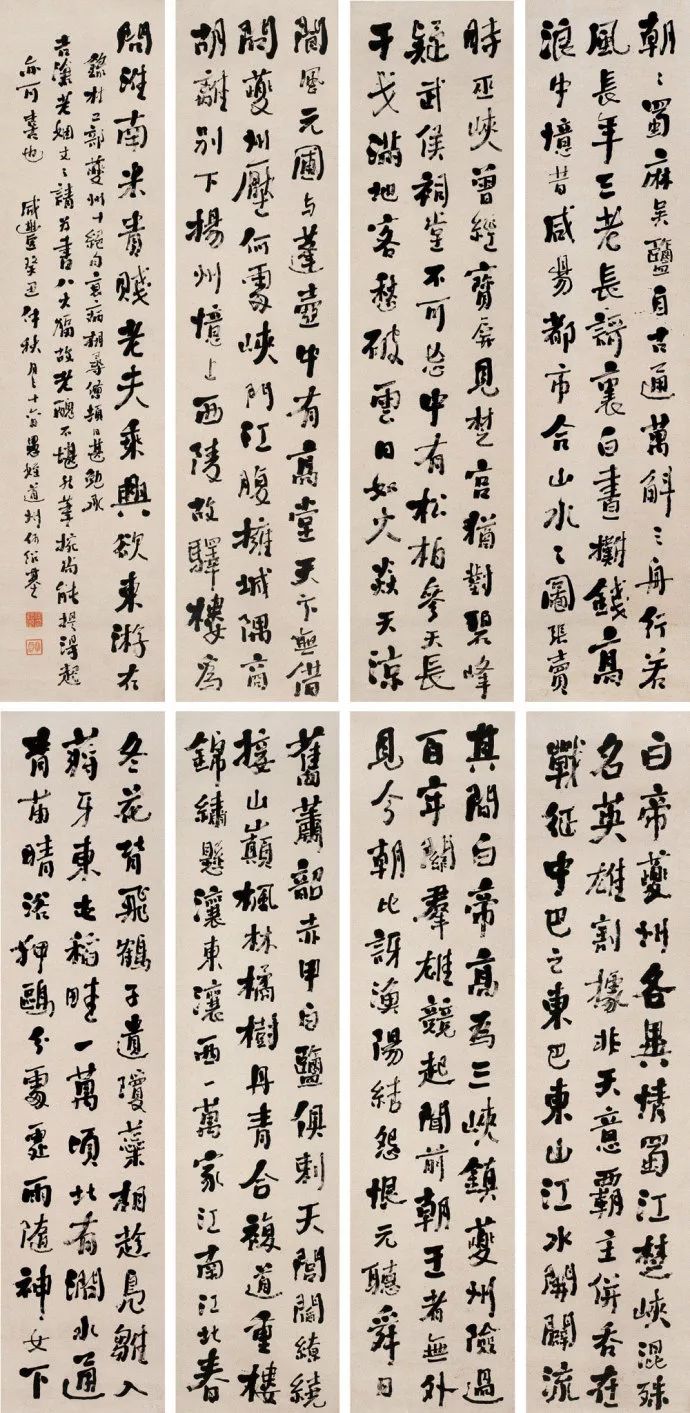 白帝夔州各異情蜀江楚峽混殊
名英雄割據非天意霸主併吞在
戰征中巴之東巴東山江水開闢流
其間白帝高爲三峽鎮夔州險過
百牢關羣雄競起聞前朝王者無外
見今朝比訝漁陽結怨恨元聽舜〻日
舊簫韶赤甲白鹽俱刺天閭閻繚繞
接山巔楓林橘樹丹青合複道重樓
錦繡懸瀼東瀼西一萬家江南江北春
冬花背飛鶴子遺瓊蘂相趁鳧雛入
蔣牙東屯稻畦一萬頃北有澗水通
青苗晴浴狎鷗分處〻雨隨神〻女下
朝〻蜀麻吳鹽自古通萬斛〻舟行若
風長年三老長謌裏白晝攤錢高
浪中憶昔咸陽都市合山水〻圖張賣
時巫峽曾經寶屏見楚宮猶對碧峰
疑武侯祠堂不可忘中有松柏參天長
干戈滿地客愁破雲日如火炎天涼
閬風元圃與蓬壺中有高堂天下無借
問夔州壓何處峽門江腹擁城隅商
胡離別下揚州憶上西陵故驛樓爲
問淮南米貴賤老夫乘興欲東游右
錄杜工部夔州十絕句衰病相尋日甚勉承
老姻丈〻請爲書八大幅故老醜不堪然筆椀尚能提得起
亦可喜也 咸豐癸丑仲秋月 愚姪道州何紹基